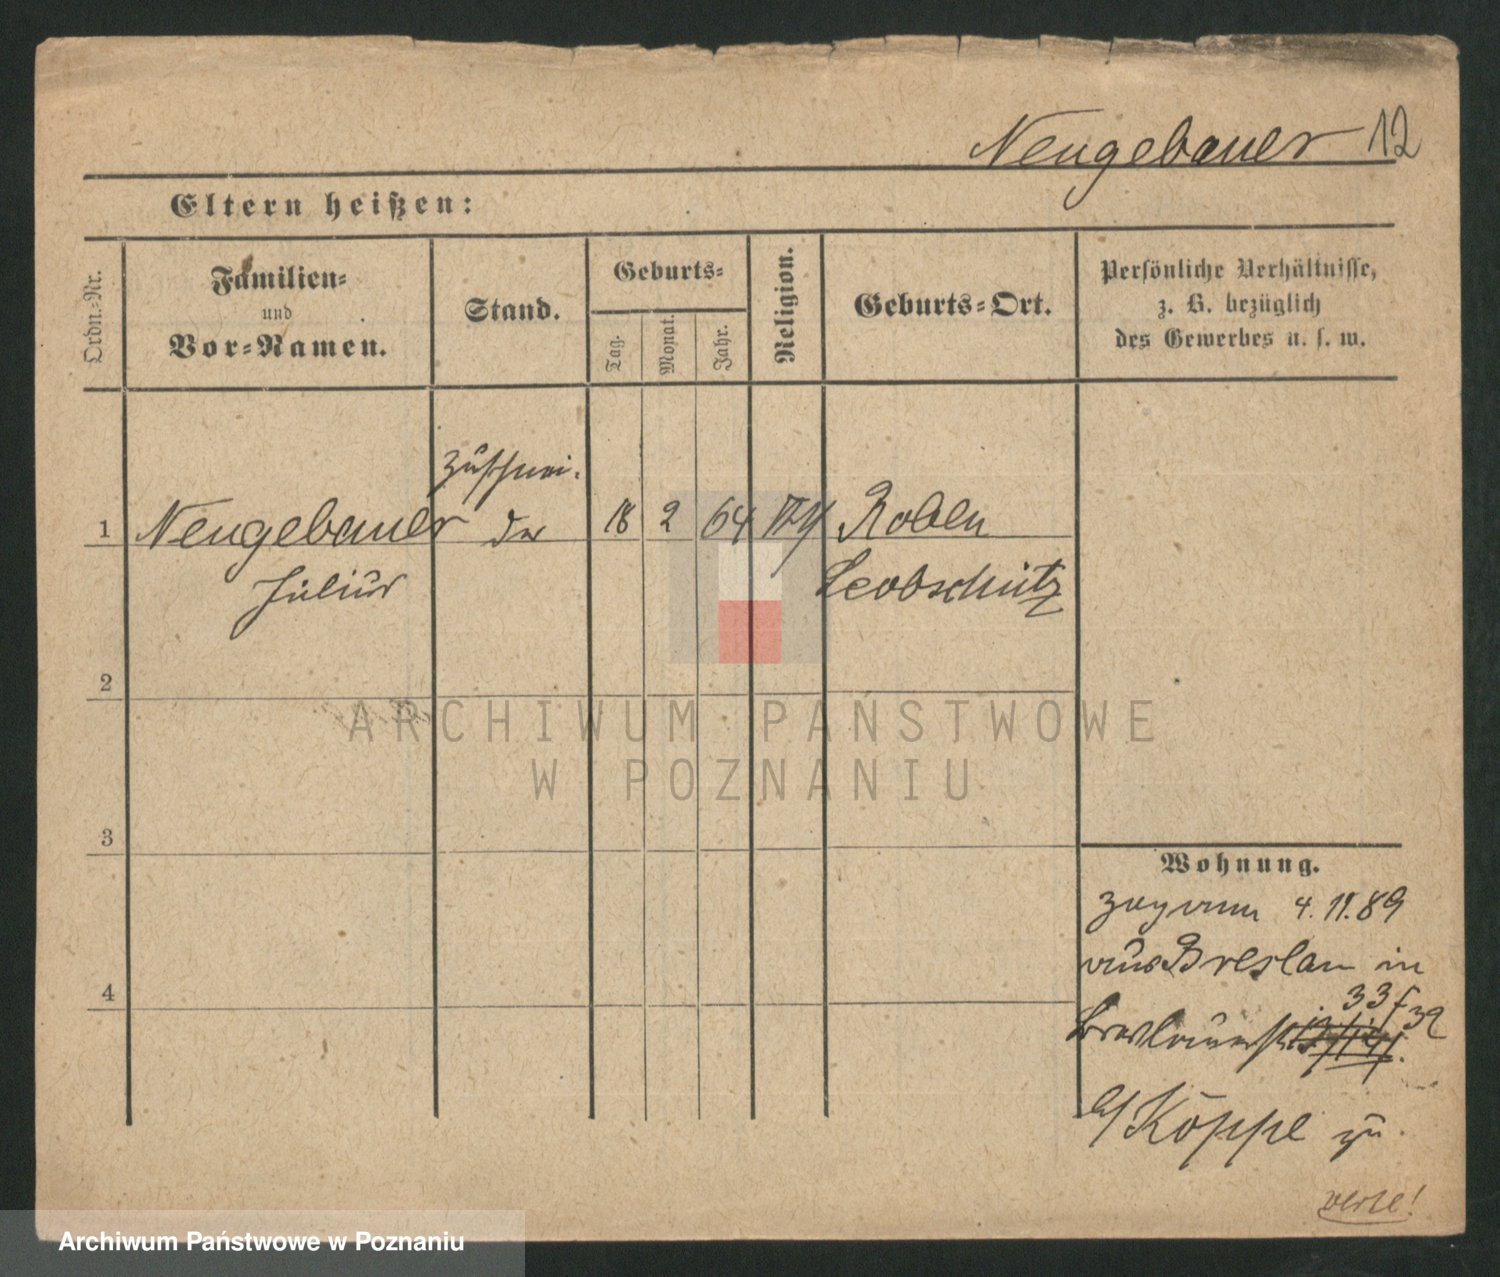 Neugebauer 12
Eltern heißen:
Ordn.-Nr.
Familien-
und
Vor-Namen.
Stand.
Geburts-
Tag.
Monat.
Jahr.
Religion.
Geburts-Ort.
Persönliche Verhältnisse,
z. B. bezüglich
des Gewerbes u. s. w.
Zuschnei-
1 Neugebauer der 18 2 64 Roben
Julius Leobschütz
2
3
4
Wohnung.
zog am 4. 11. 89
aus Breslau in
33 f 32
Breslauerstr
b/ Köppe zu
verte!
ARCHIWUM PAŃSTWOWE
W POZNANIU
Archiwum Państwowe w Poznaniu